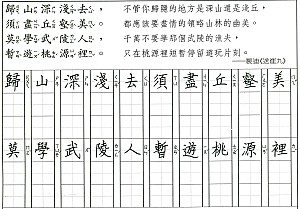 歸山深淺去，
須盡丘壑美。
莫學武陵人，
暫遊桃源裡。
不管你歸隱的地方是深山還是淺丘，
都應該要盡情的領略山林的幽美。
千萬不要學那個武陵的漁夫，
只在桃源裡短暫停留遊玩片刻。
——裴迪〈送崔九〉
歸山深淺去須盡丘壑美
莫學武陵人暫遊桃源裡